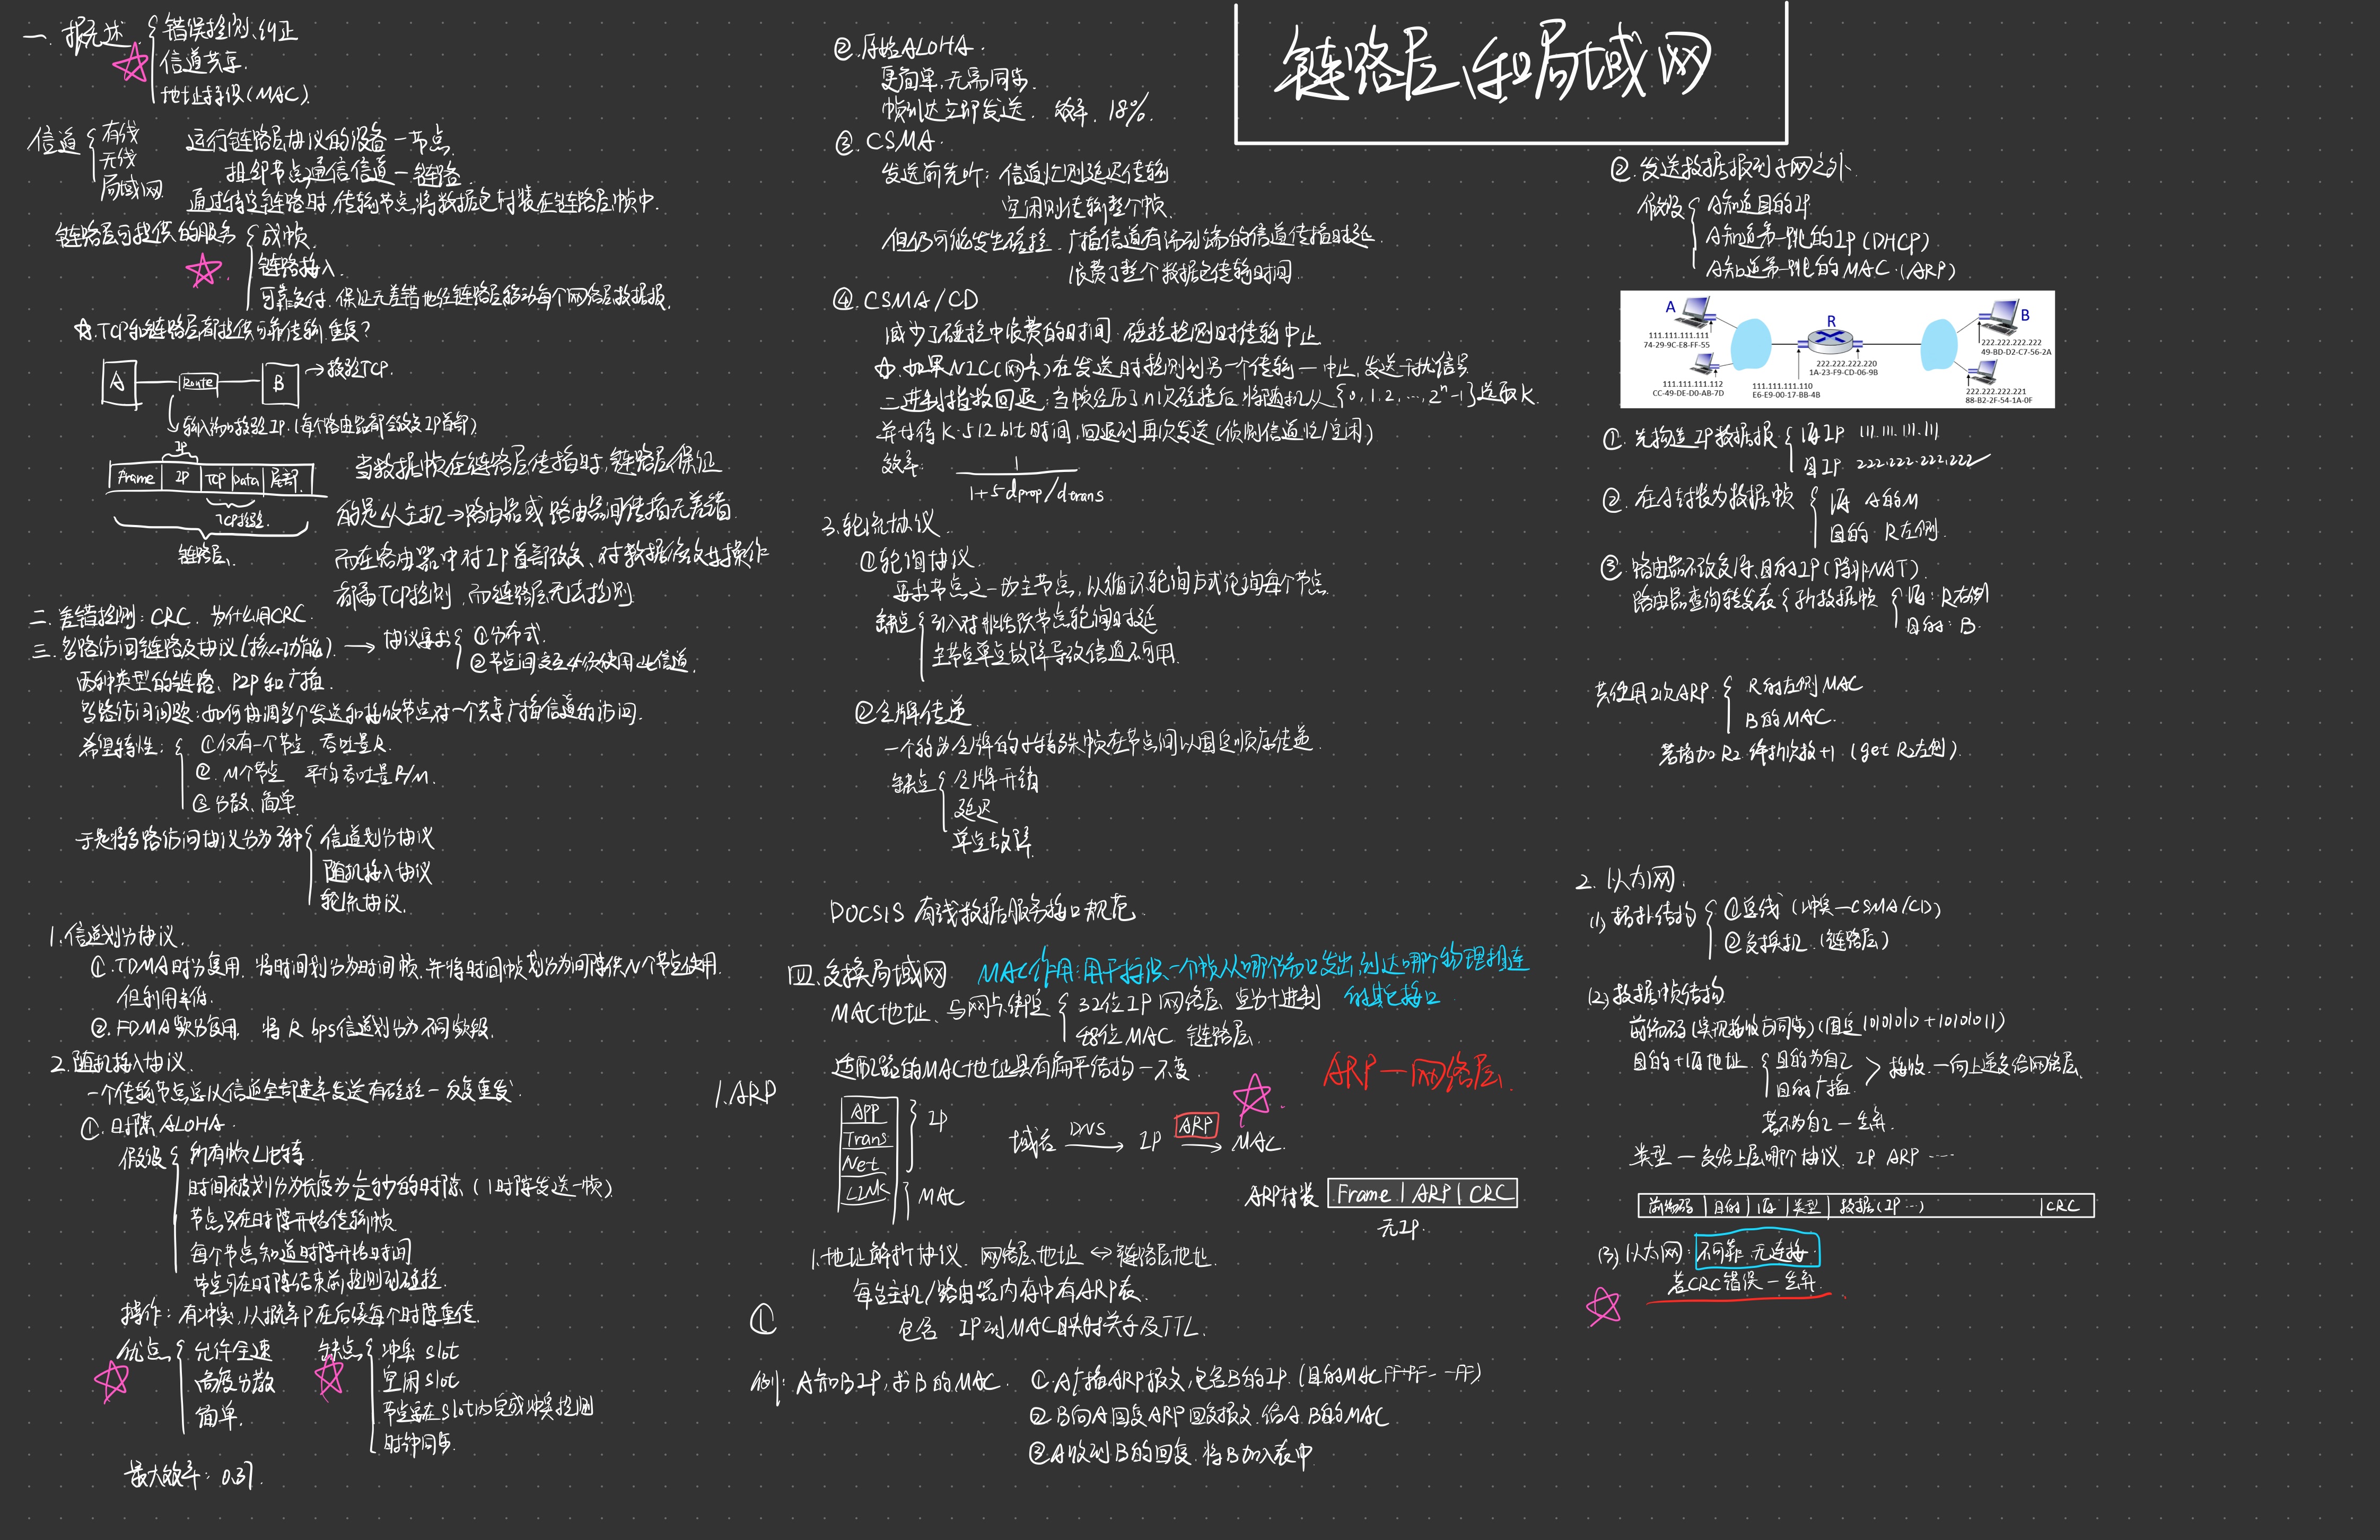 链路层和局域网
一. 概述
错误检测、纠正
信道共享.
地址寻址(MAC).
信道
有线
无线
局域网
运行链路层协议的设备—节点.
相邻节点通信信道—链路.
通过特定链路时,传输节点将数据包封装在链路层帧中.
链路层可提供的服务
成帧.
链路接入.
可靠交付. 保证无差错地经链路层移动每个网络层数据报.
☆.TCP和链路层都提供可靠传输 重复?
A
Route
B
→校验TCP.
输入端口校验IP.(每个路由器都会改变IP首部)
IP
Frame | IP | TCP | Data | 尾部.
TCP校验.
链路层.
当数据帧在链路层传播时,链路层保证
的是从主机→路由器或路由器间传播无差错.
而在路由器中对IP首部改变、对数据修改等操作
都需TCP检测,而链路层无法检测
二. 差错检测: CRC. 为什么用CRC.
三. 多路访问链路及协议(核心功能). → 协议要求
①分布式.
②节点间交互必须使用此信道.
两种类型的链路、P2P和广播.
多路访问问题:如何协调多个发送和接收节点对一个共享广播信道的访问.
希望特性:
①仅有一个节点,吞吐量R.
②. M个节点 平均吞吐量R/M.
③分散、简单
于是将多路访问协议分为3种
信道划分协议
随机接入协议
轮流协议.
1.信道划分协议.
①.TDMA时分复用. 将时间划分为时间帧.并将时间帧划分为时隙供N个节点使用.
但利用率低.
②.FDMA频分复用. 将R bps信道划分为不同频段.
2.随机接入协议.
一个传输节点总以信道全部速率发送有碰撞—反复重发.
①.时隙ALOHA.
假设
所有帧L比特
时间被划分为长度为 秒的时隙.(1时隙发送一帧)
节点只在时隙开始传输帧
每个节点知道时隙开始时间
节点可在时隙结束前检测到碰撞.
操作: 有冲突,以概率P在后续每个时隙重传.
优点
允许全速
高度分散
简单.
缺点
冲突slot
空闲slot
节点要在slot内完成冲突检测
时钟同步.
最大效率: 0.37.
②.原始ALOHA.
更简单,无需同步.
帧到达立即发送. 效率. 18%.
③. CSMA.
发送前先听: 信道忙则延迟传输
空闲则传输整个帧.
但仍可能发生碰撞. 广播信道有端到端的信道传播时延.
浪费了整个数据包传输时间.
④.CSMA/CD
减少了碰撞中浪费的时间. 碰撞检测时传输中止
☆.如果NIC(网卡)在发送时检测到另一个传输—中止,发送干扰信号
二进制指数回退:当帧经历了n次碰撞后.将随机从{0,1,2,...,2ⁿ-1}选取K.
并等待K·512bit时间,回退到再次发送(侦测信道忙/空闲)
效率: 1
1+5dprop/dtrans
3.轮流协议.
①轮询协议.
要求节点之一为主节点,以循环轮询方式轮询每个节点.
缺点
引入对非活跃节点轮询时延
主节点单点故障导致信道不可用.
②令牌传递
一个称为令牌的小特殊帧在节点间以固定顺序传递.
缺点
令牌开销
延迟
单点故障.
DOCSIS 有线数据服务接口规范.
四.交换局域网
MAC作用:用于标识一个帧从哪个端口发出,到达哪个物理相连
的其它接口
MAC地址、与网卡绑定
32位IP 网络层 点分十进制
48位MAC 链路层.
适配器的MAC地址具有扁平结构—不变.
ARP—网络层.
1.ARP
APP
Trans
Net
LINK
IP
MAC
域名 DNS → IP ARP → MAC.
ARP封装 Frame | ARP | CRC
无IP.
1.地址解析协议. 网络层地址 ⇔ 链路层地址.
每台主机/路由器内存中有ARP表.
包含 IP到MAC映射关系及TTL.
①
例: A知B IP,求B的MAC.
①.A广播ARP报文,包含B的IP.(目的MAC FF-FF---FF)
②B向A回复ARP回复报文.给A B的MAC
③A收到B的回复.将B加入表中.
②.发送数据报到子网之外.
假设
A知道目的IP.
A知道第一跳的IP(DHCP)
A知道第一跳的MAC.(ARP)
A
R
B
111.111.111.111
74-29-9C-E8-FF-55
222.222.222.222
49-BD-D2-C7-56-2A
222.222.222.220
1A-23-F9-CD-06-9B
111.111.111.112
CC-49-DE-D0-AB-7D
111.111.111.110
E6-E9-00-17-BB-4B
222.222.222.221
88-B2-2F-54-1A-0F
①.先构造IP数据报
源IP 111.111.111.111
目IP 222.222.222.222
②.在A封装为数据帧
源 A的M
目的: R左侧.
③ 路由器不改变源、目的IP(除非NAT)
路由器查询转发表
新数据帧
源: R右侧
目的: B
共使用2次ARP.
R的左侧MAC
B的MAC.
若增加R2.解析次数+1.(get R2左侧)
2. 以太网.
(1).拓扑结构
①总线 (冲突—CSMA/CD)
②交换机.(链路层)
(2).数据帧结构.
前导码(实现接收方同步)(固定10101010+10101011)
目的+源地址.
目的为自己
目的广播
> 接收.—向上递交给网络层.
若不为自己—丢弃.
类型—交给上层哪个协议. IP ARP ....
前导码 | 目的 | 源 | 类型 | 数据(IP...) | CRC
(3).以太网: 不可靠 无连接.
若CRC错误—丢弃.